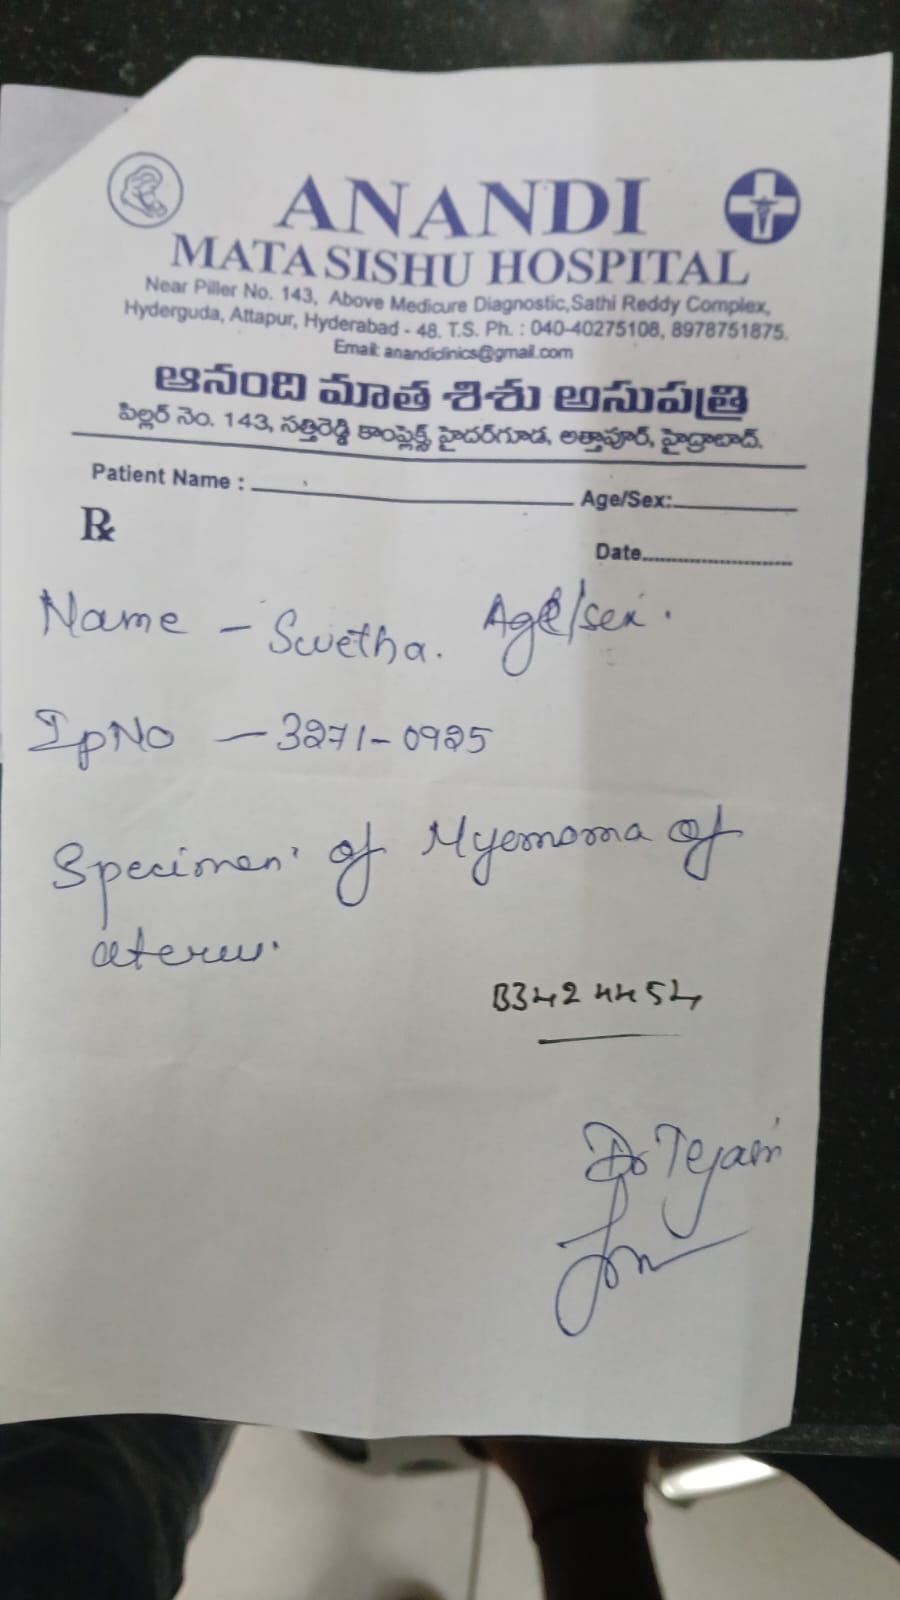 ANANDI
MATA SISHU HOSPITAL
Near Piller No. 143, Above Medicure Diagnostic,Sathi Reddy Complex,
Hyderguda, Attapur, Hyderabad - 48. T.S. Ph. : 040-40275108, 8978751875.
Email: anandiclinics@gmail.com
ఆనంది మాత శిశు అసుపత్రి
పిల్లర్ నెం. 143, సత్తిరెడ్డి కాంప్లెక్స్, హైదర్‌గూడ, అత్తాపూర్, హైద్రాబాద్.
Patient Name : Age/Sex:
Rx
Date
Name - Swetha. Age/sex.
IpNo - 3271-0925
Specimen of Myemoma of
uterus.
B3424454
Dr Tejasri